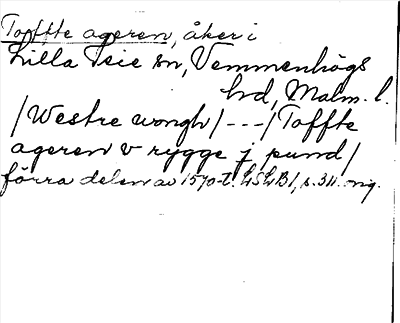 Toffte ageren, åker i
Lilla Beie sn, Vemmenhögs
hd, Malm. l.
/Westre wongh/ ---/Toffte
ageren v rygge j pund/
förra delen av 1570-t. LSLB1, s. 311. orig.